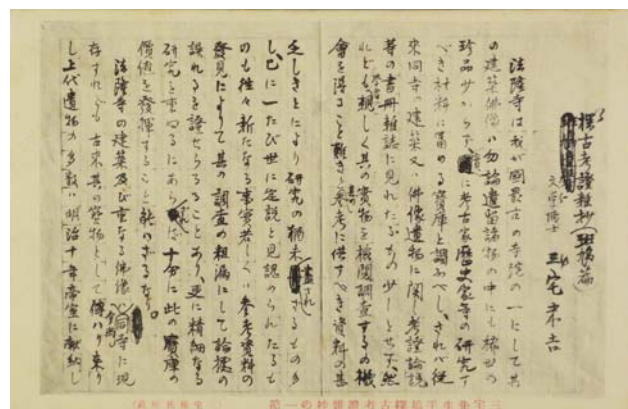 探古考證雑抄(斑鳩篇)
文学博士 三宅米吉
法隆寺は我が國最古の寺院の一にして其
の建築佛像ハ勿論遺留諸物の中にも稀世の
珍品少からず、に考古家歴史家等の研究す
べき材料に富める寳庫と謂ふべし、されバ従
来同寺の建築又ハ佛像遺物に関する考證論説
等の書冊雑誌に見れたるもの少しとせず、然
れども親しく其の實物を検閲調査するの機
會を得ること難きと参考に供すべき資料の甚
乏しきとにより研究の猶未盡されざるもの多
し、已に一たび世に定説と見認められたるも
のも往々新たなる事實若しくハ参考資料の
發見によりて其の調査の粗漏にして論據の
誤れるを證せらるることあり、更に精細なる
研究を重ぬるにあらざれば十分に此の寳庫の
價値を發揮すること能ハざるなり。
法隆寺の建築及び重なる佛像ハ今尚同寺に現
存すれども古来其の寳物として傳ハり来り
し上代遺物の多数ハ明治十年帝室に献納し
三宅先生手稿探古考證雑抄の一節